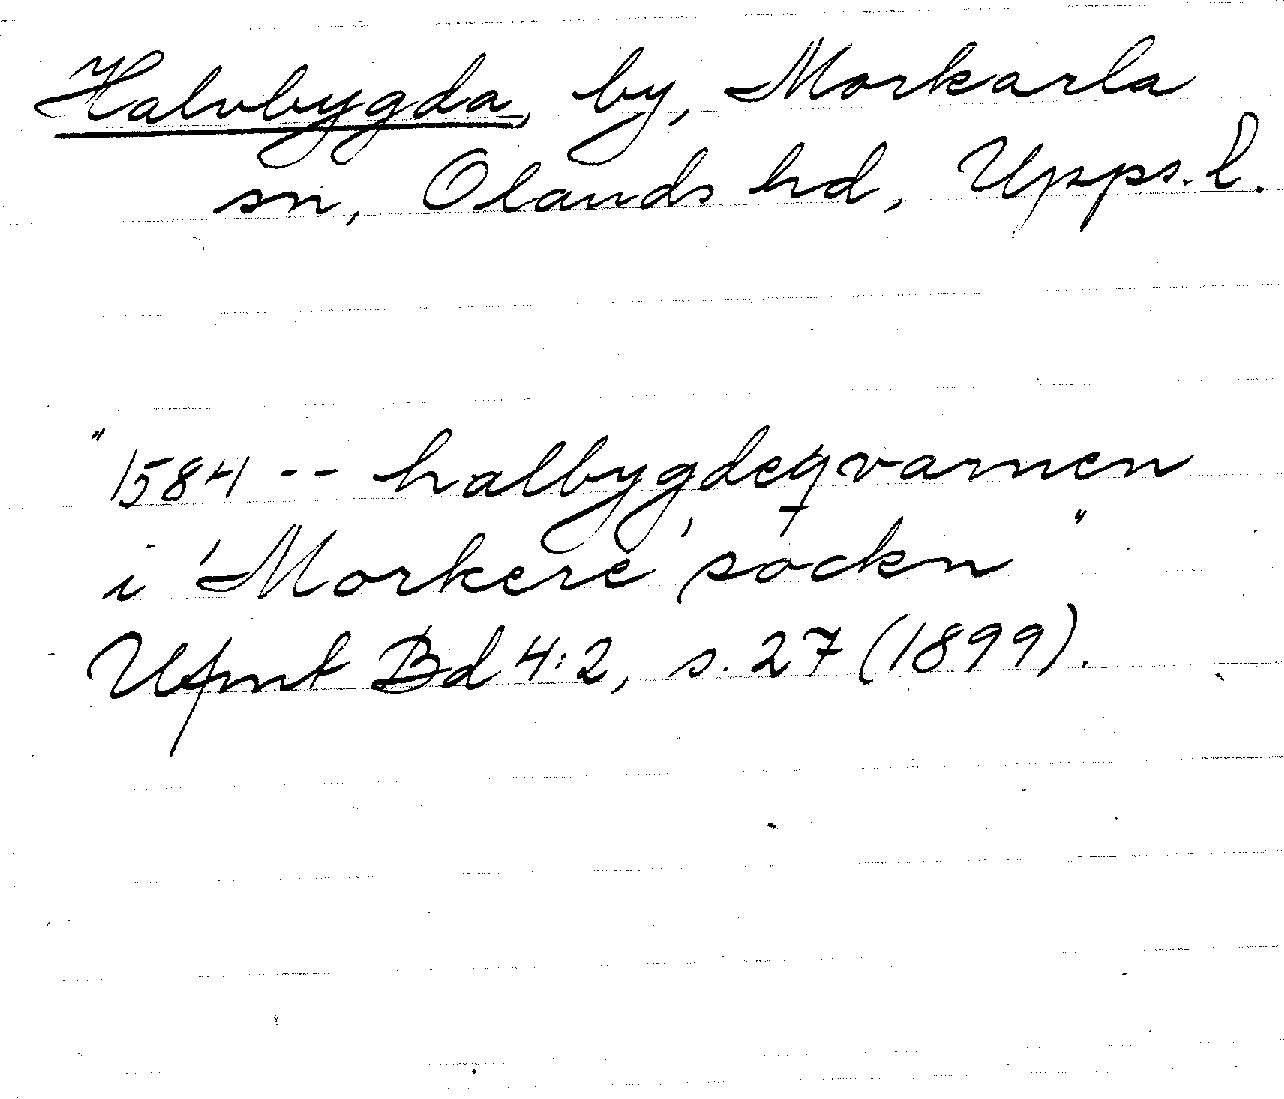 Halvbygda, by, Morkarla
sn, Olands hd, Upps. l.
"1584 -- halbygdeqvarnen
i 'Morkere' sockn"
Ufmt Bd 4:2, s. 27 (1899).